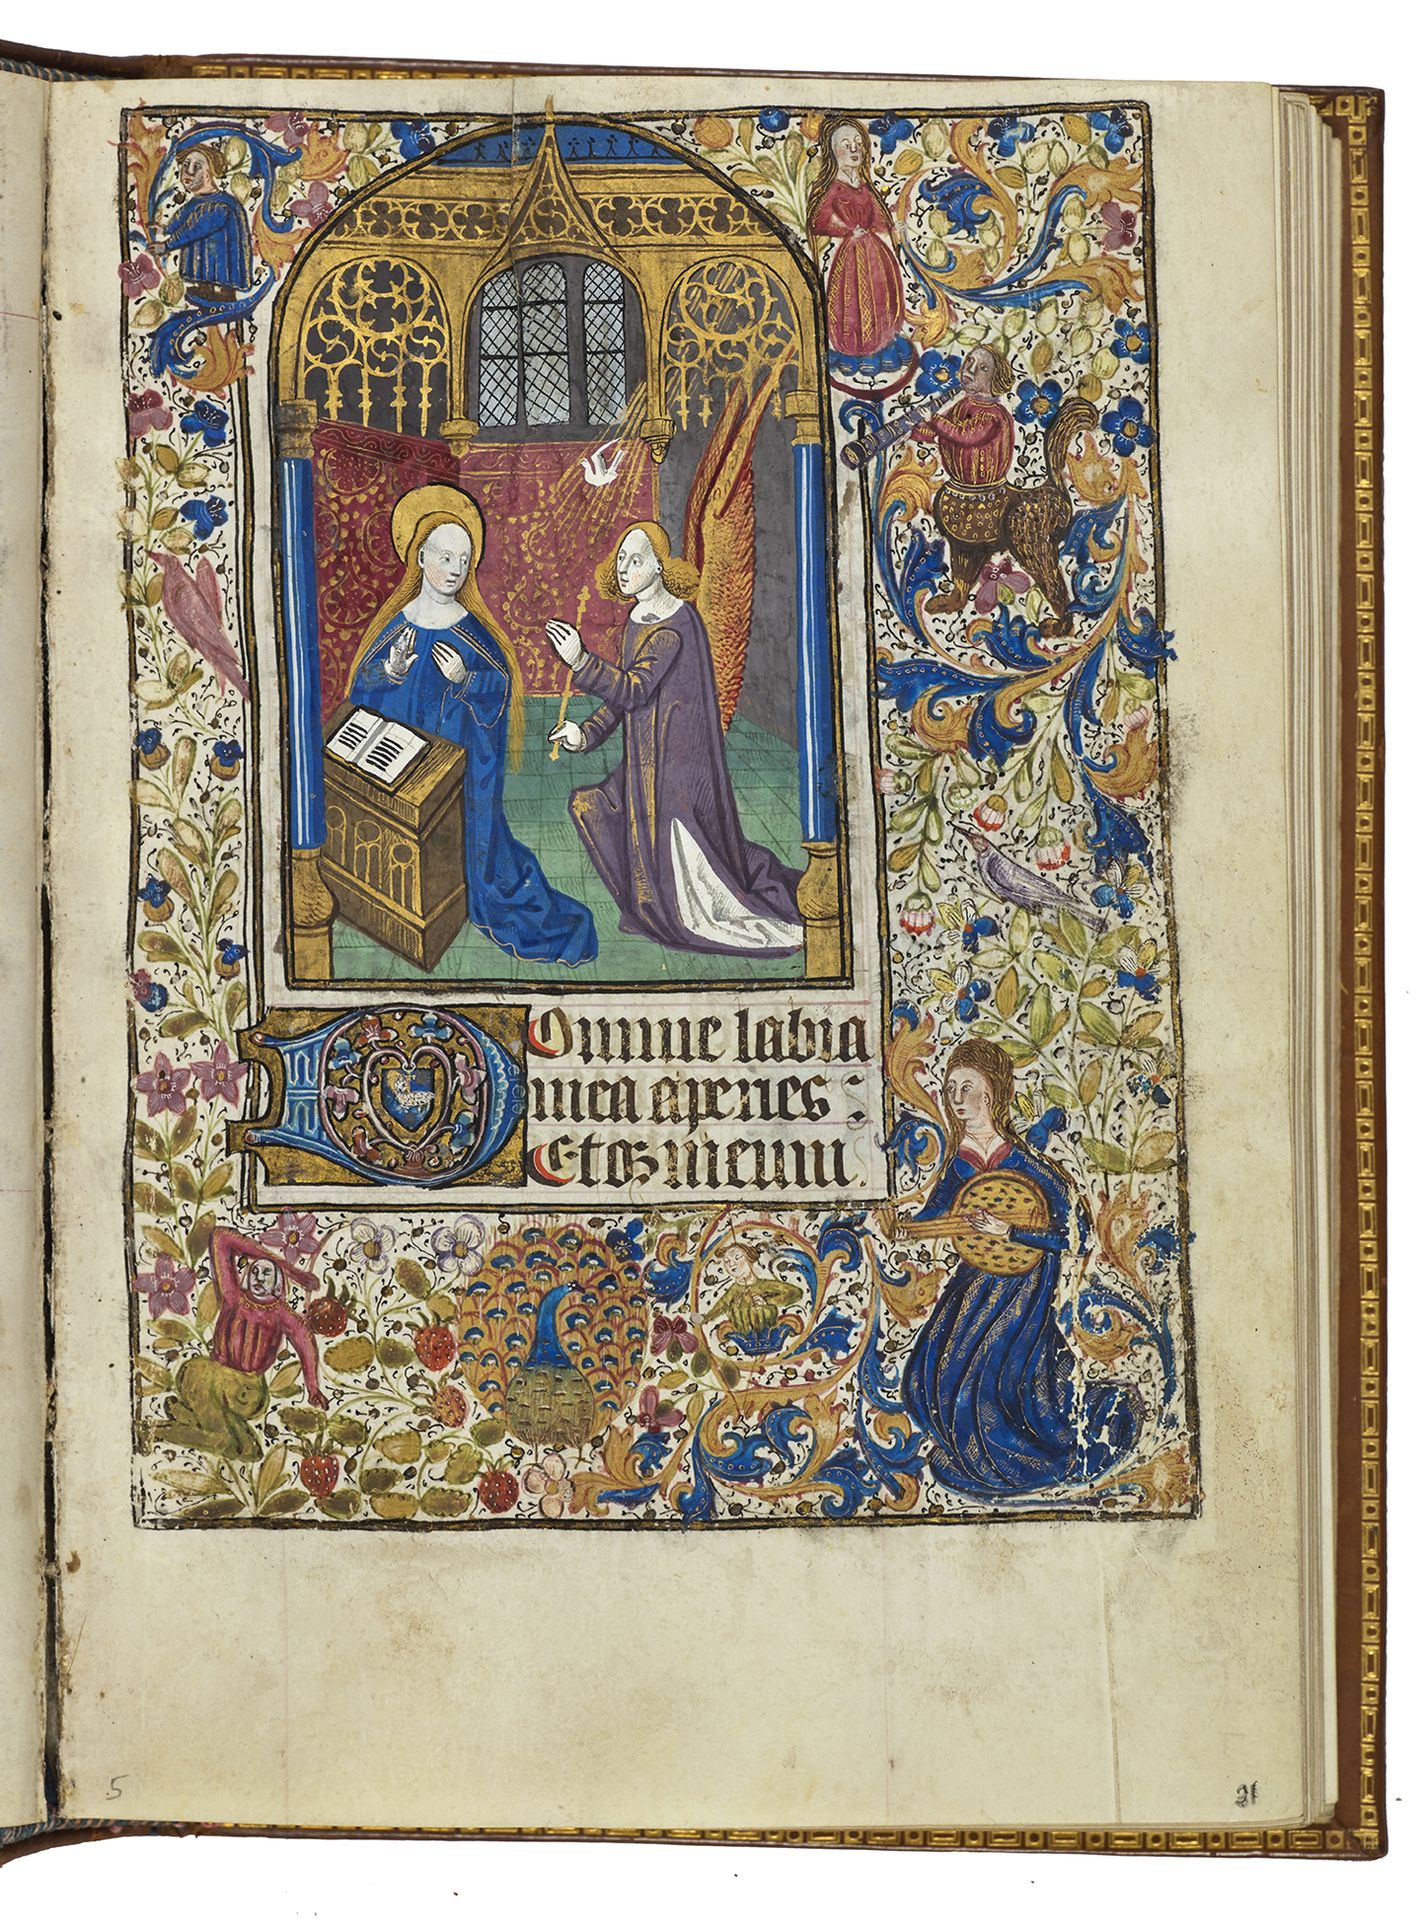 Domine labia
mea aperies :
Et os meum .
5
21